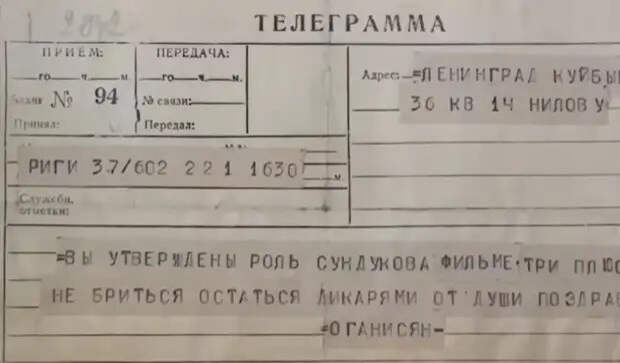 ТЕЛЕГРАММА
ПРИЕМ:
го ч. м.
Бланк № 94
Принял:
ПЕРЕДАЧА:
го ч. м.
№ связи:
Передал:
Адрес: =ЛЕНИНГРАД КУЙБЫ
36 КВ 14 НИЛОВУ
РИГИ 37/602 22 1 1630 м.
Служебн.
отметки:
=ВЫ УТВЕРЖДЕНЫ РОЛЬ СУНДУКОВА ФИЛЬМЕ ТРИ ПЛЮС
НЕ БРИТЬСЯ ОСТАТЬСЯ ДИКАРЯМИ ОТ ДУШИ ПОЗДРАВ
=ОГАНИСЯН-